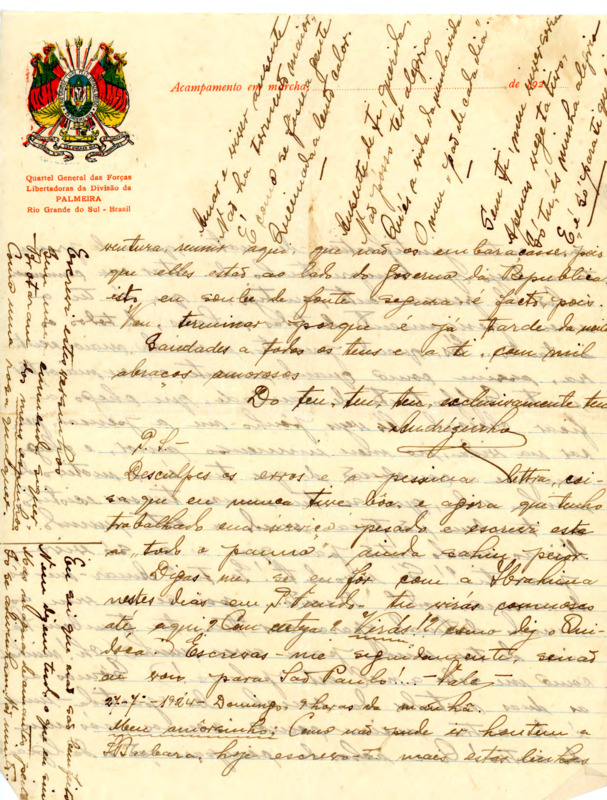 Quartel General das Forças
Libertadoras da Divisão da
PALMEIRA
Rio Grande do Sul - Brasil
Acampamento em marcha, de 192
Amar e viver ausente
Não ha tormento maior,
É como se fôr a gente
a lento calor.
Ausente de ti, querida,
Não posso ter alegria
És a vida da minha vida
O meu pão de cada dia.
Sem ti, meu
Apenas vegetativo,
Só tu, és minha alegria
E, é só para ti que
ventura, reunir aqui, que não os embaracasse, pois
que elles estão ao lado do Governo da Republica
isto, eu soube de fonte segura e facto, pois.
Vou terminar porque é já tarde da noite
Saudades a todos os teus e a ti, com mil
abraços amorosos
Do teu, teu, teu, exclusivamente teu
Andrézinho
P. S.-
Desculpes os erros e a pessima lettra, coi-
sa que eu nunca tive bôa, e agora que tenho
trabalhado em serviço pesado e escrevi esta
a "todo o panno" ainda sahiu peior
Digas-me, se eu fôr com a Ibrahima
nestes dias em P. tu virás comnosco
até aqui? Com certeza? "Virás!!?" como diz o
Escrevas-me seguidamente, sinão
eu vou para São Paulo!... - Vale -
27-7-1924 - Domingo, 9 horas da manhã.
Meu amorsinho: Como não pude ir hontem a
Barbara, hoje escrevo-te mais estas linhas
Escrevi estes versinhos
Botaram
Como uma rosa qualquer.
Eu sei que não são bonitos
Nem dizem tudo o que eu sinto